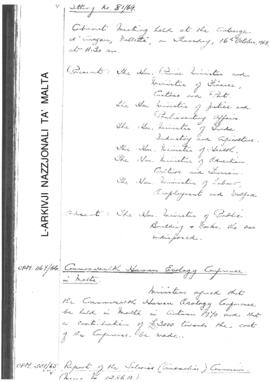 Meeting No 81/69.
Cabinet Meeting held at the Auberge
d'Aragon, Valletta, on Thursday, 16th October, 1969,
at 11.30 am
Present: The Hon. Prime Minister and
Minister of Finance,
Customs and Port.
The Hon. Minister of Justice and
Parliamentary Affairs
The Hon. Minister of Trade
Industry and Agriculture.
The Hon. Minister of Health.
The Hon. Minister of Education
Culture and Tourism.
The Hon. Minister of Labour,
Employment and Welfare
Absent: The Hon. Minister of Public
Building & Works. He was
indisposed.
L-ARKIVJI NAZZJONALI TA' MALTA
Commonwealth Human Ecology Conference
in Malta.
Ministers agreed that
the Commonwealth Human Ecology Conference
be held in Malta in Autumn 1970 and that
a contribution of £3000 towards the cost
of the Conference be made.
Report of the Salaries Commission